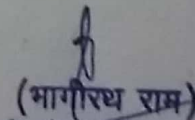 (भागीरथ राम)